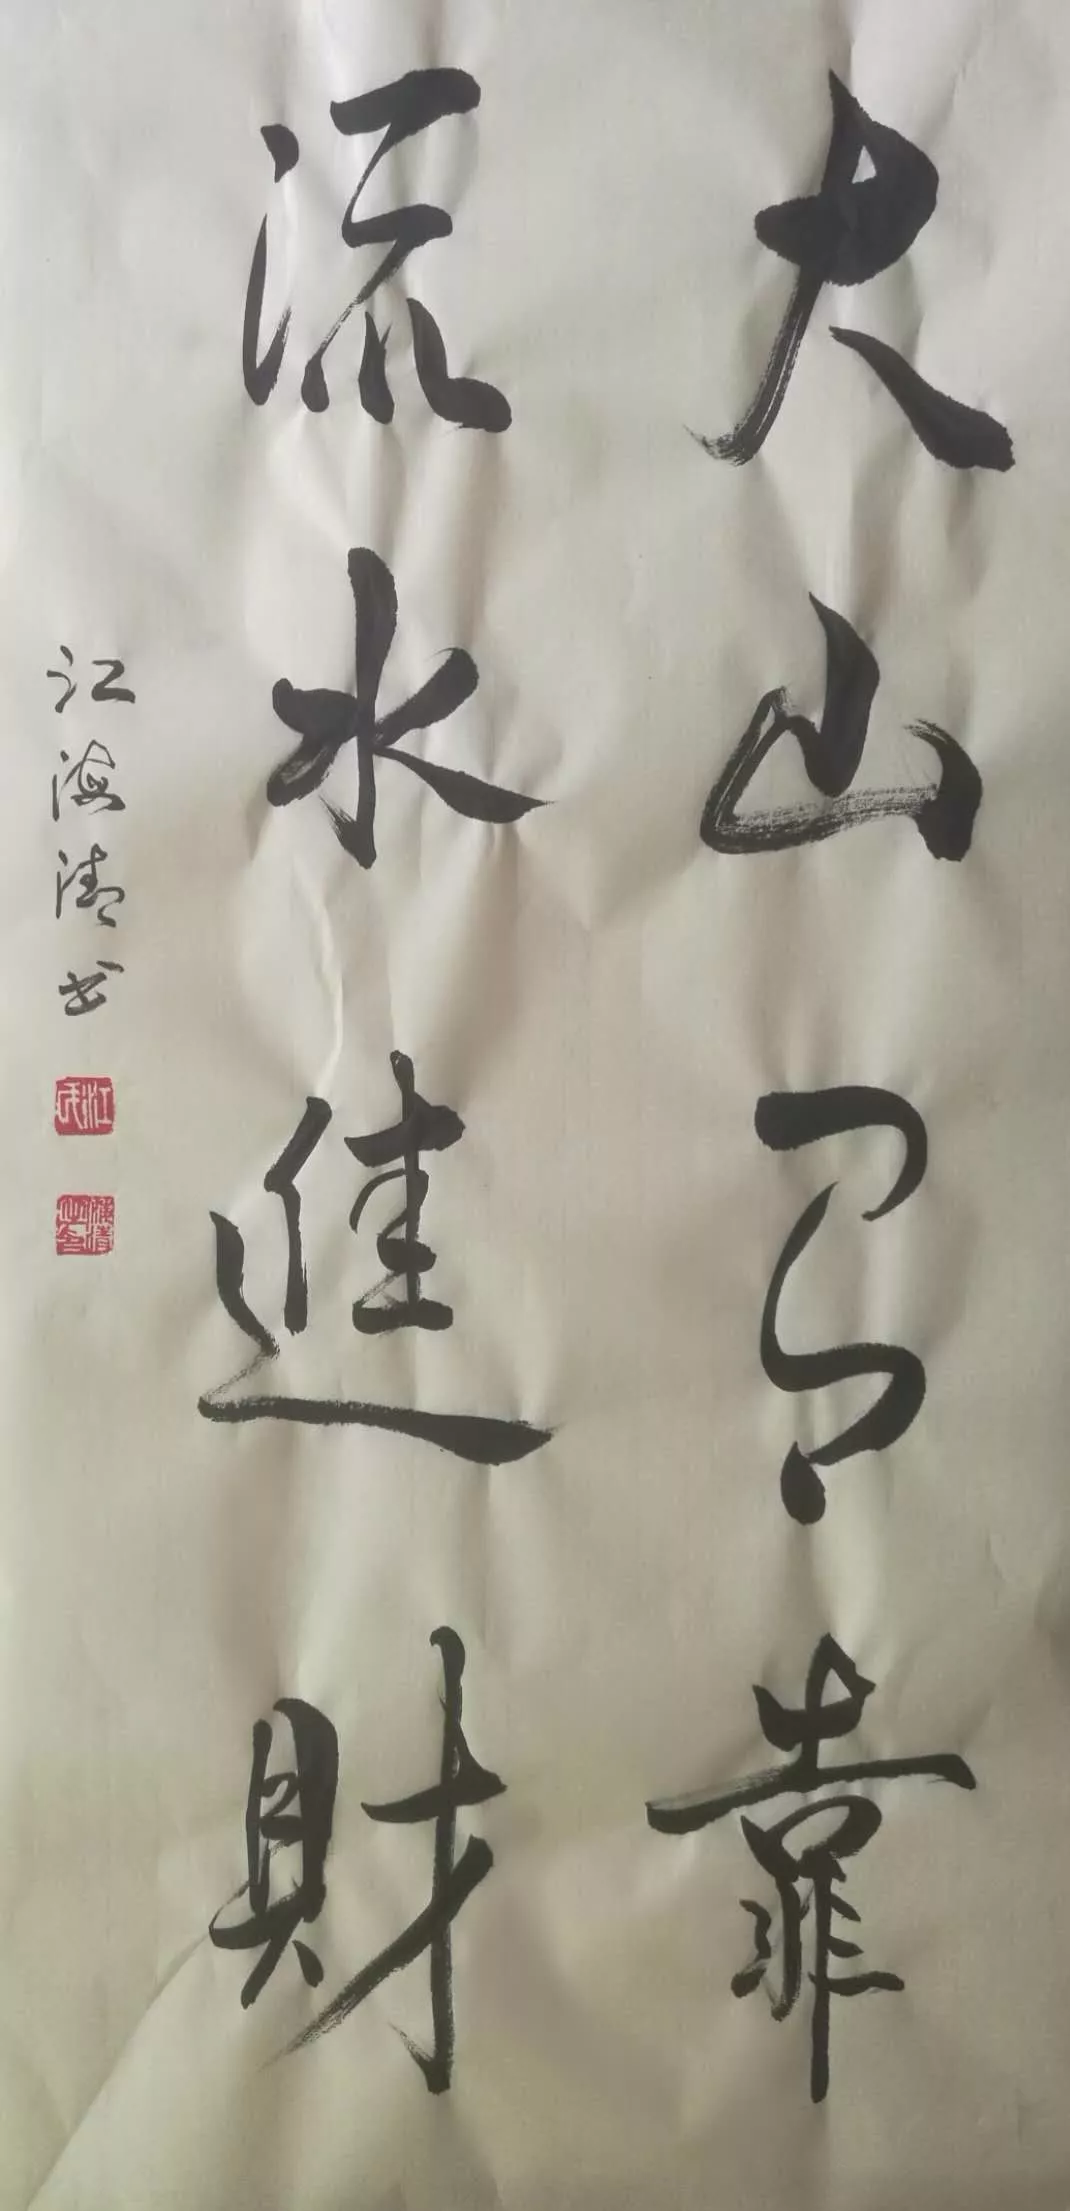 大山有靠
流水進財
江海清书
江氏